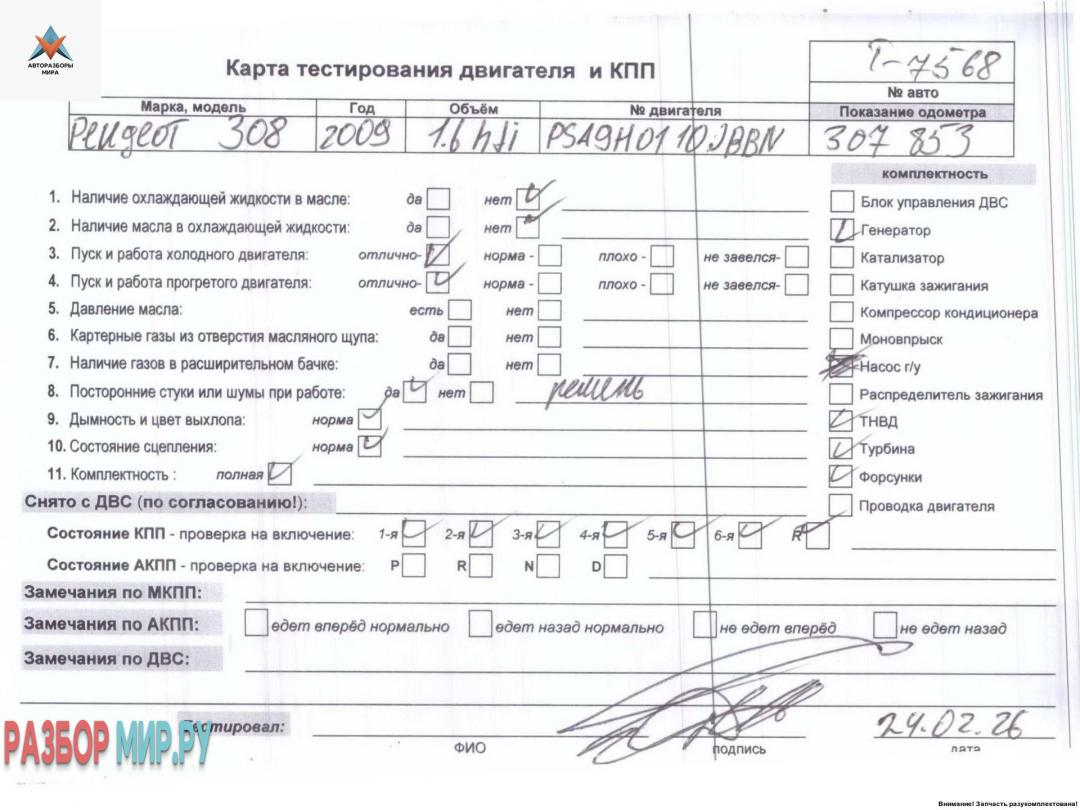 АВТОРАЗБОРЫ
МИРА
Карта тестирования двигателя и КПП
Т-7568
№ авто
Марка, модель Год Объём № двигателя Показание одометра
Peugeot 308 2009 1.6 hdi PSA9H01 10JBBN 307 853
комплектность
1. Наличие охлаждающей жидкости в масле: да нет
Блок управления ДВС
2. Наличие масла в охлаждающей жидкости: да нет
Генератор
3. Пуск и работа холодного двигателя: отлично- норма - плохо - не завелся-
Катализатор
4. Пуск и работа прогретого двигателя: отлично- норма - плохо - не завелся-
Катушка зажигания
5. Давление масла: есть нет
Компрессор кондиционера
6. Картерные газы из отверстия масляного щупа: да нет
Моновпрыск
7. Наличие газов в расширительном бачке: да нет
Насос г/у
8. Посторонние стуки или шумы при работе: да нет ремень
Распределитель зажигания
9. Дымность и цвет выхлопа: норма
ТНВД
10. Состояние сцепления: норма
Турбина
11. Комплектность : полная
Форсунки
Снято с ДВС (по согласованию!):
Проводка двигателя
Состояние КПП - проверка на включение: 1-я 2-я 3-я 4-я 5-я 6-я R
Состояние АКПП - проверка на включение: P R N D
Замечания по МКПП:
Замечания по АКПП: едет вперёд нормально едет назад нормально не едет вперёд не едет назад
Замечания по ДВС:
Тестировал: 24.02.26
ФИО подпись дата
РАЗБОРМИР.РУ
Внимание! Запчасть разукомплектована!